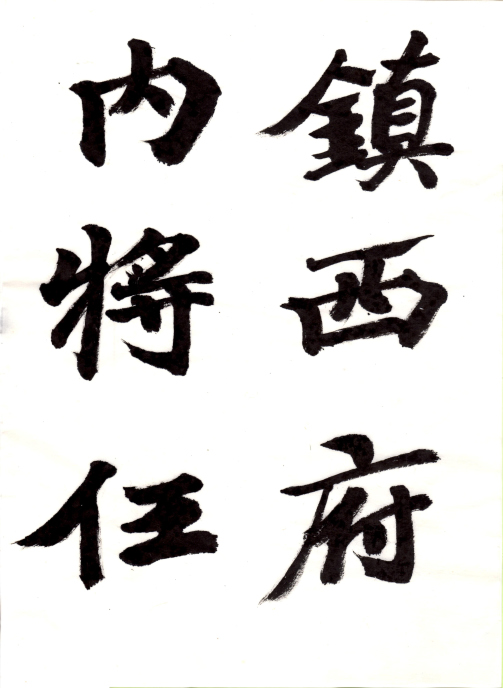 鎮西府
内將任